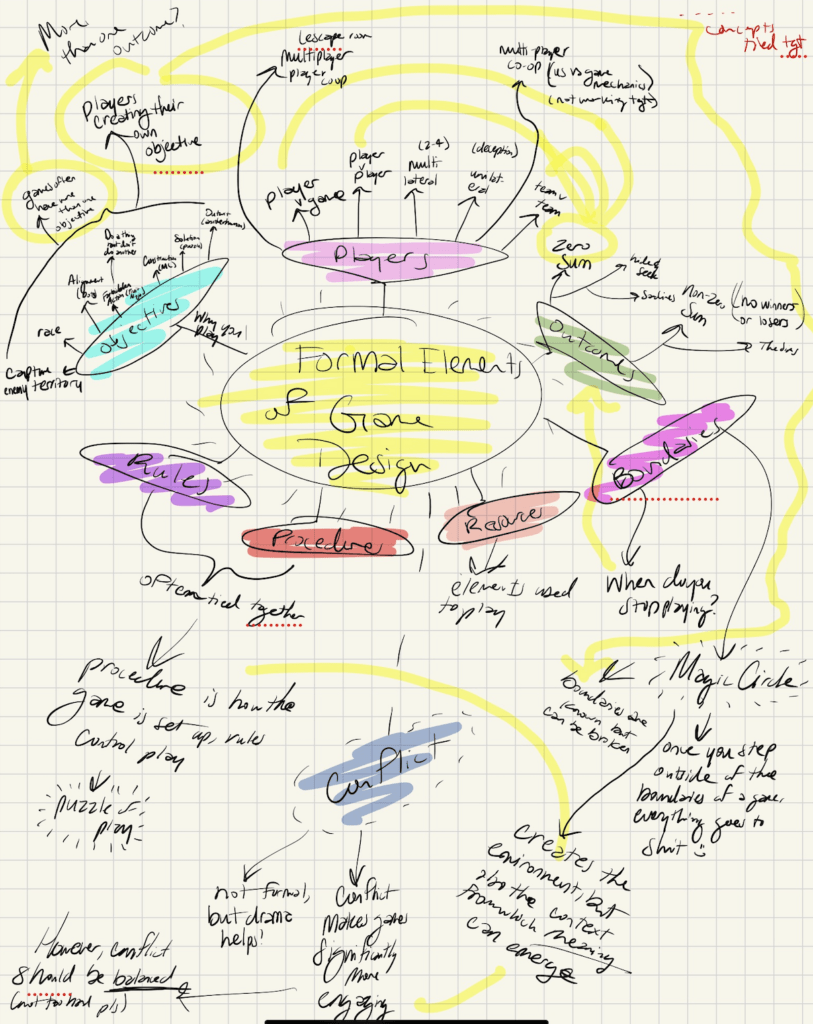 More
than one
outcome?
concepts
tied tgt
Lescape room
multiplayer
player
coop
multi-player
co-op
(us vs game
mechanics)
(not working tgt)
players
creating their
own
objective
games often
have more
than one
objective
player
v game
player
v
player
(2-4)
multi
lateral
(deception)
unilat
eral
team v
team
Players
Alignment
Solution
race
Capture
enemy territory
Objectives
Why you
play
Zero
Sum
hide & seek
Non-Zero
Sum
(no winners
or losers)
Outcomes
Formal Elements
of Game
Design
Boundaries
When do you
stop playing?
Magic Circle
boundaries are
known but
can be broken
once you step
outside of the
boundaries of a game,
everything goes to
shit :)
creates the
environment, but
also the context
from which meaning
can emerge
Rules
Procedure
often tied together
procedure is how the
game is set up, rules
control play
puzzle of
play
Resource
elements used
to play
Conflict
not formal,
but drama
helps!
Conflict
makes games
significantly
more
engaging
However, conflict
should be balanced
(not too hard pls)